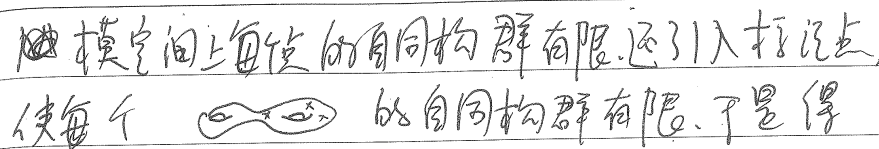 模空间上每点的自同构群有限.还引入标记点,
使每个 的自同构群有限.于是得